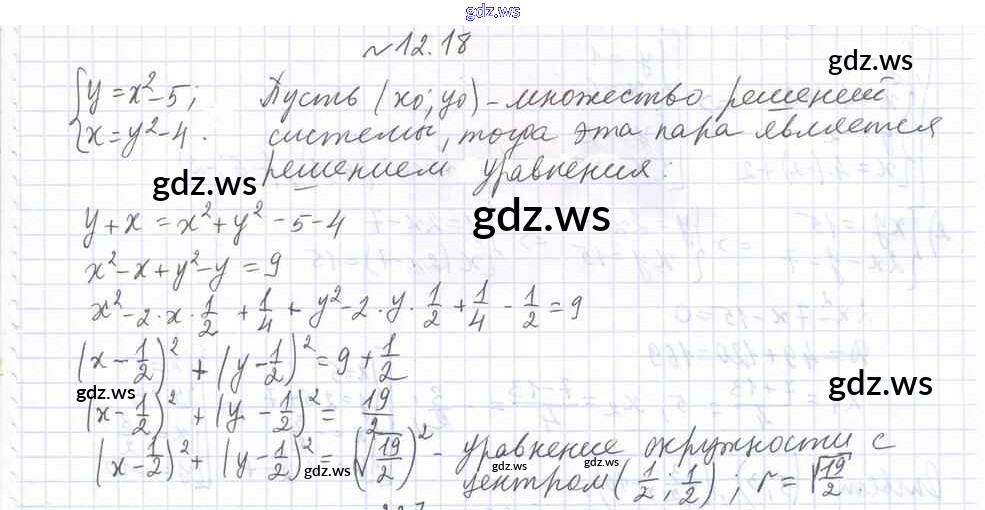 gdz.ws
№12.18
gdz.ws
{y = x² - 5; Пусть (x0; y0) - множество решений
{x = y² - 4. системы, тогда эта пара является
решением уравнения:
gdz.ws
gdz.ws
y + x = x² + y² - 5 - 4
x² - x + y² - y = 9
x² - 2 · x · 1/2 + 1/4 + y² - 2 · y · 1/2 + 1/4 - 1/2 = 9
(x - 1/2)² + (y - 1/2)² = 9 + 1/2
gdz.ws
gdz.ws
(x - 1/2)² + (y - 1/2)² = 19/2
(x - 1/2)² + (y - 1/2)² = (√19/2)² - уравнение окружности с
gdz.ws
gdz.ws
gdz.ws
центром (1/2; 1/2); r = √19/2.